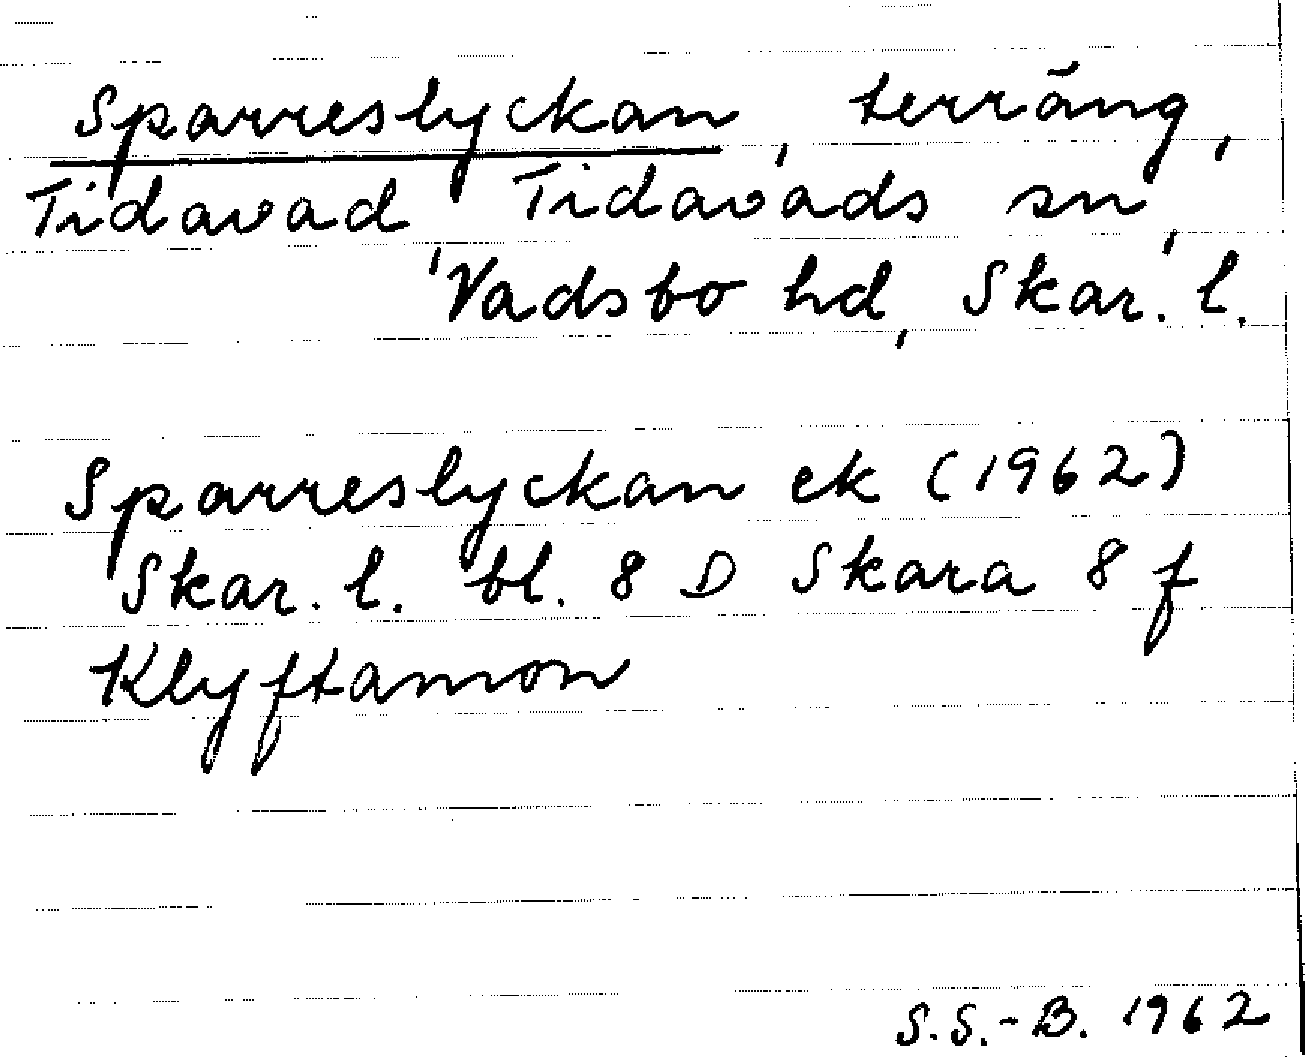 Sparreslyckan, terräng,
Tidavad, Tidavads sn,
Vadsbo hd, Skar. l.
Sparreslyckan ek (1962)
Skar. l. bl. 8 D Skara 8 f
Klyftamon
S.S.-B. 1962